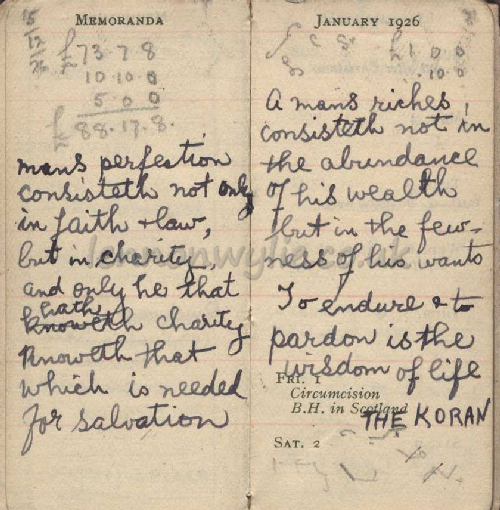 MEMORANDA
15/12/26
£73-7-8
10.10.0
5 0 0
£88.17.8.
mans perfection
consisteth not only
in faith + law,
but in charity,
and only he that
hath
knoweth charity
knoweth that
which is needed
for salvation
JANUARY 1926
£ 1 0 0
.10.0
A mans riches,
consisteth not in
the abundance
of his wealth
but in the few-
ness of his wants
To endure & to
pardon is the
wisdom of life
FRI. 1
Circumcision
B.H. in Scotland
THE KORAN
SAT. 2
lennonwylie.co.uk